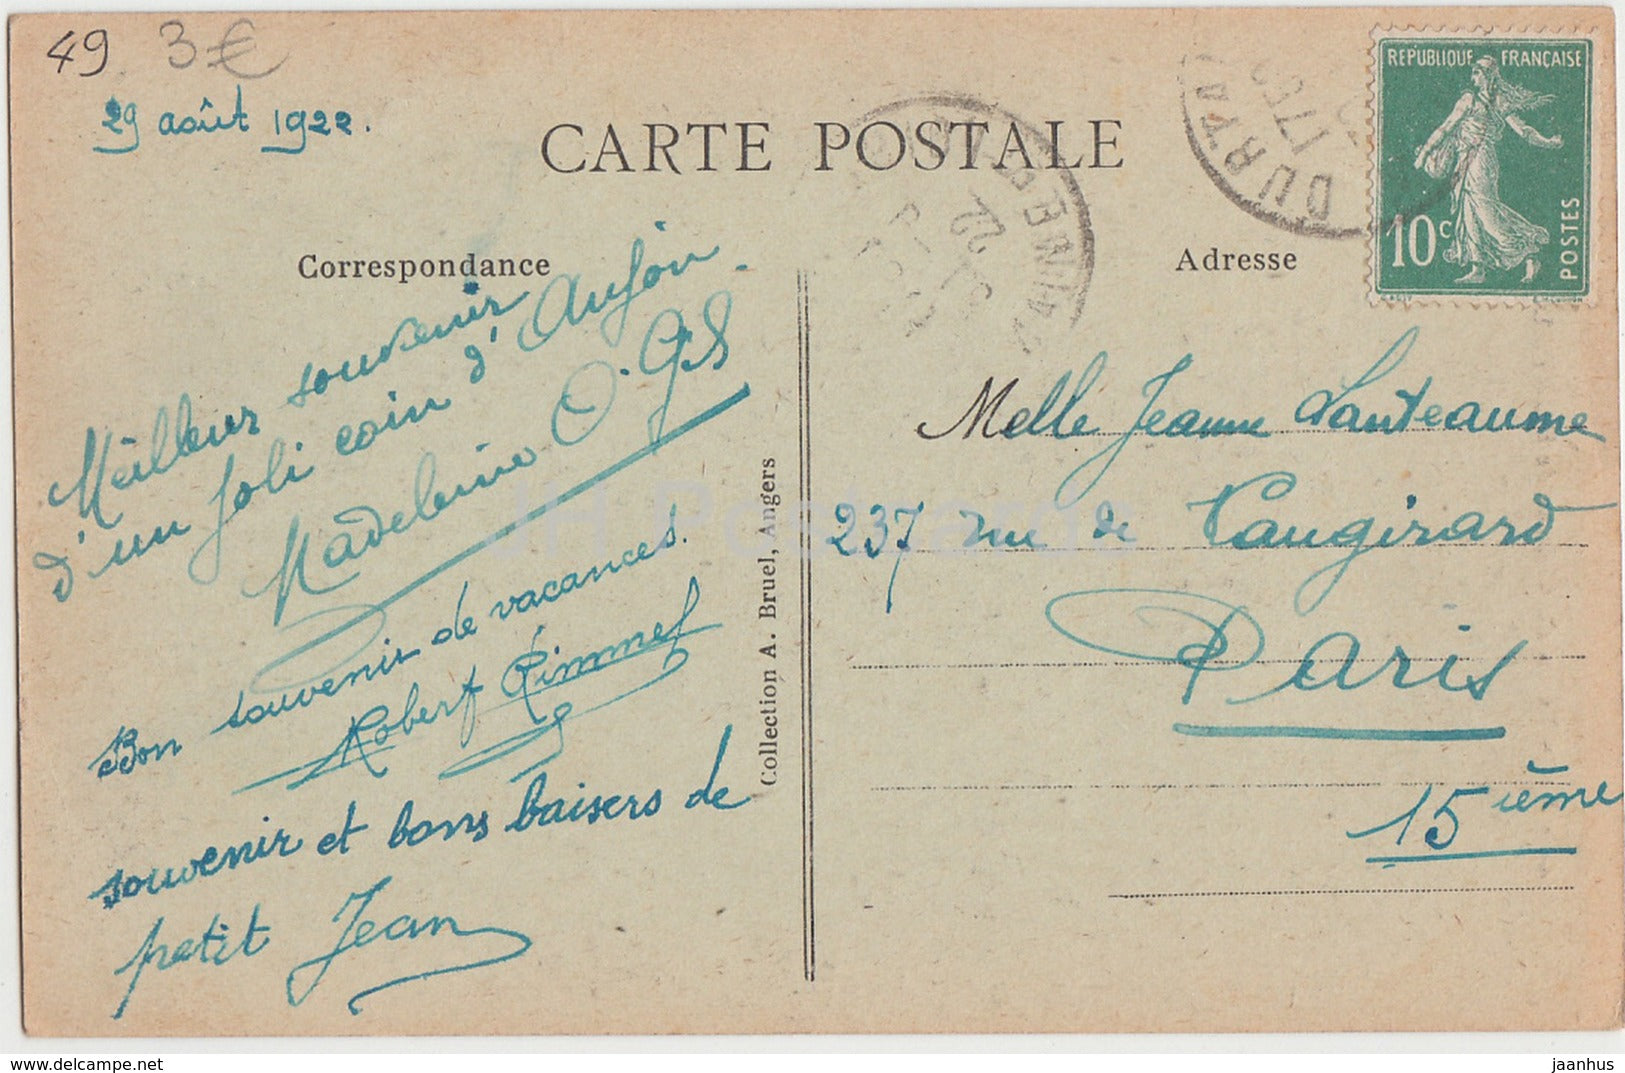 49 3€
29 août 1922.
CARTE POSTALE
Correspondance
Adresse
REPUBLIQUE FRANÇAISE
10c
POSTES
DURTAL
17
22
Meilleur souvenir
d'un joli coin d'Anjou.
Madeleine
Bon souvenir de vacances.
Robert Rimmel
souvenir et bons baisers de
petit Jean
Collection A. Bruel, Angers
Melle Jeanne Lanteaume
237 rue de Vaugirard
Paris
15 ième
JH Postcards
jaanhus
www.delcampe.net